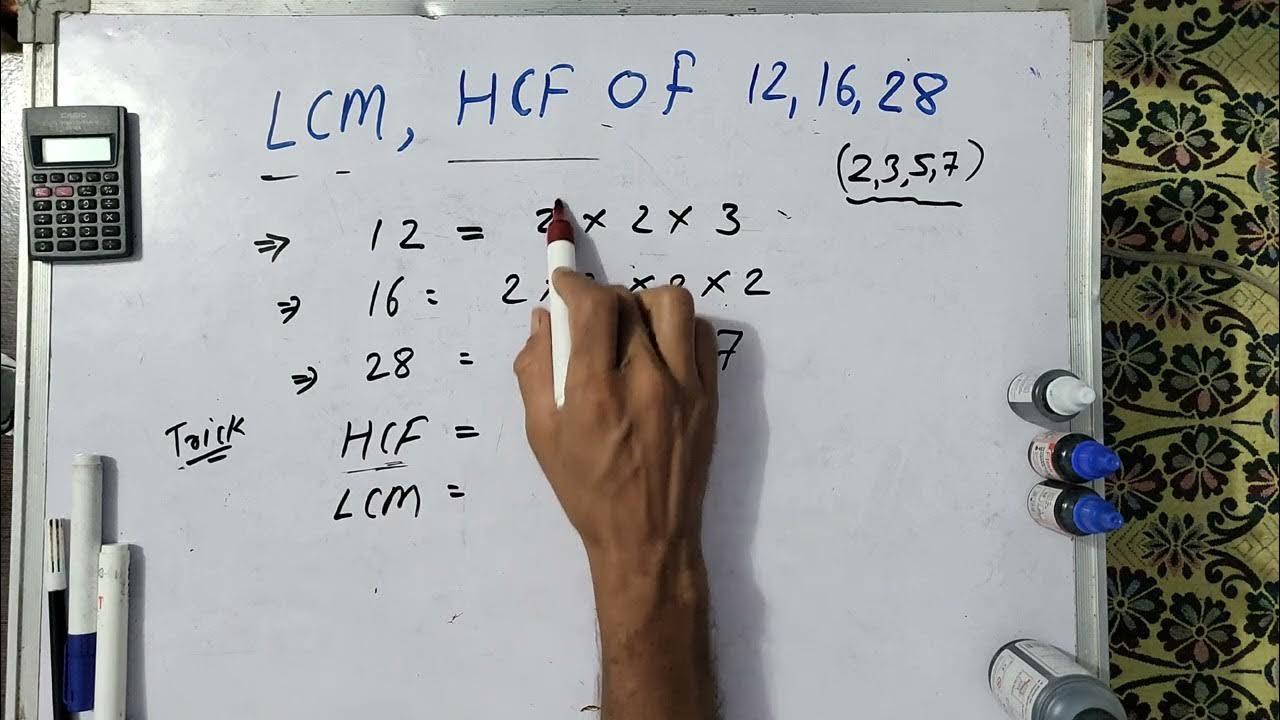 LCM, HCF Of 12, 16, 28
(2,3,5,7)
CASIO
⇒ 12 = 2 × 2 × 3
⇒ 16 = 2 × × 2 × 2
⇒ 28 = 7
Trick
HCF =
LCM =